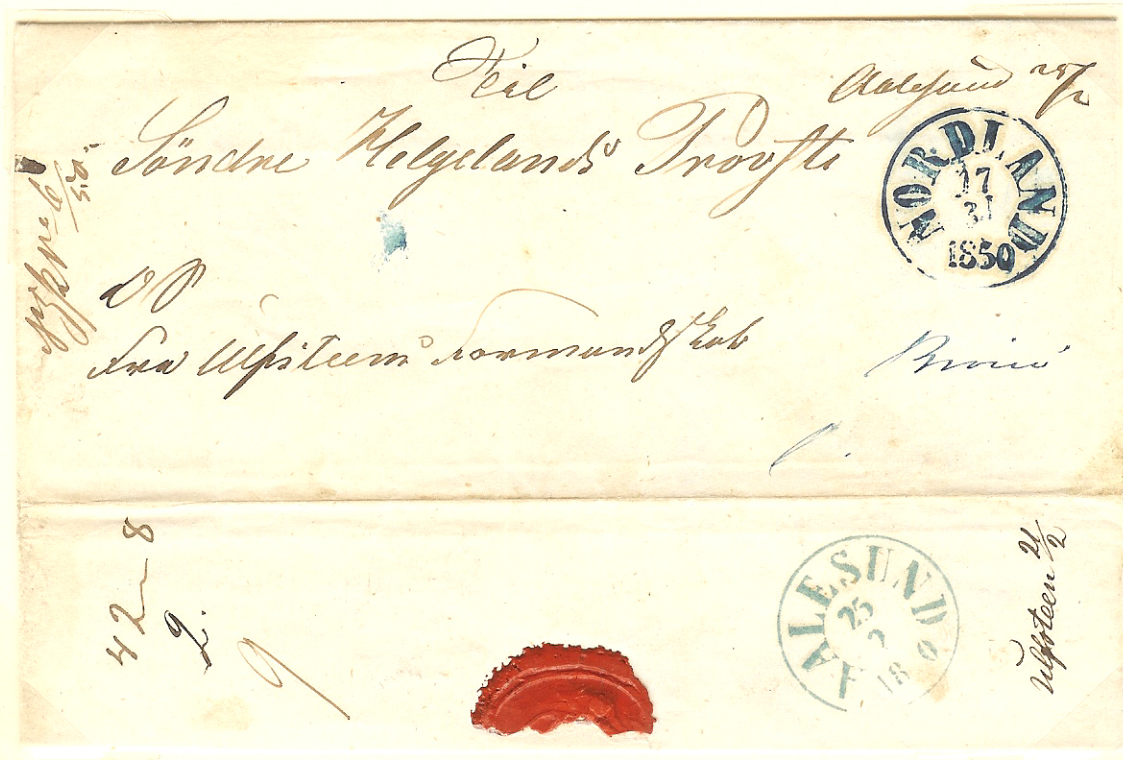 Teil
Aalesund 25/2
Söndre Helgelands Provsti
NORDLAND
17
3
1850
d S
Fra Ulfsteens Formandskab
AALESUND
25
2
18 0
Ulfsteen 21/2
42 8
2.
9